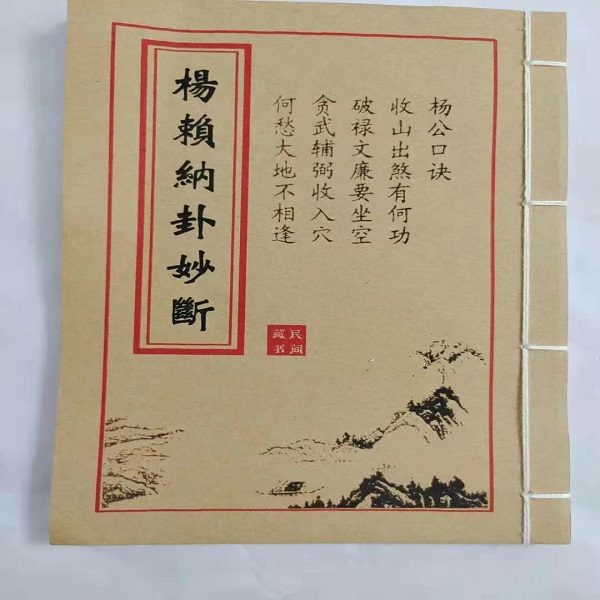 杨公口诀
收山出煞有何功
破禄文廉要坐空
贪武辅弼收入穴
何愁大地不相逢
楊賴納卦妙斷
民间
藏书